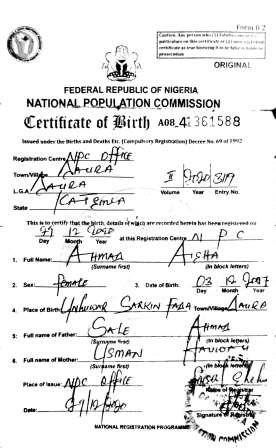 Form B 2
Caution: Any person who (1) falsifies any of the
particulars on this certificate or (2) uses a falsified
certificate as true knowing it to be false is liable to
prosecution
ORIGINAL
FEDERAL REPUBLIC OF NIGERIA
NATIONAL POPULATION COMMISSION
Certificate of Birth A08 41361588
Issued under the Births and Deaths Etc. (Compulsory Registration) Decree No. 69 of 1992
Registration Centre NPC OFFICE
Town/Village
L.G.A
State KATSINA
II 2020 349
Volume Year Entry No.
This is to certify that the birth, details of which are recorded herein has been registered on
12 2020 at this Registration Centre N P C
Day Month Year
1. Full Name: AHMAD AISHA
(Surname first) (In block letters)
2. Sex: Female 3. Date of Birth: 03 12 2007
Day Month Year
4. Place of Birth UNGUWAR SARKIN FADA Town/Village
5. Full name of Father: SALE AHMAD
(Surname first) (In block letters)
6. Full name of Mother: USMAN
(Surname first) (In block letters)
Place of Issue: NPC OFFICE
Name of Registrar
Date: 12/2020
Signature of Registrar
NATIONAL REGISTRATION PROGRAMME